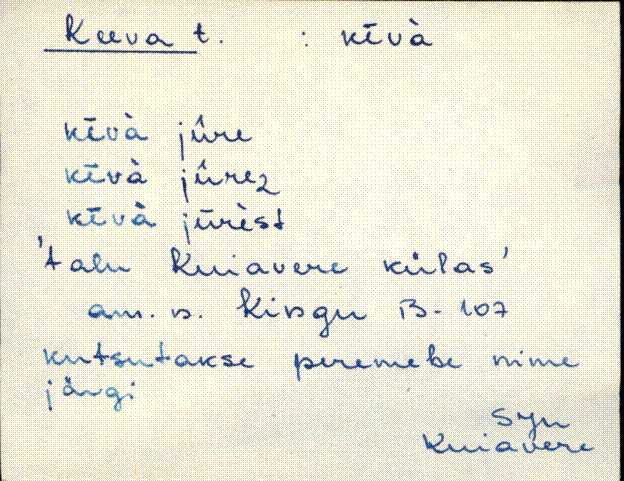 Keeva t. : kīvà
kīvà jûre
kīvà jûrez
kīvà jūrèst
'talu Kuiavere külas'
am. n. Kingu B-107
kutsutakse peremehe nime
järgi
Sjn
Kuiavere